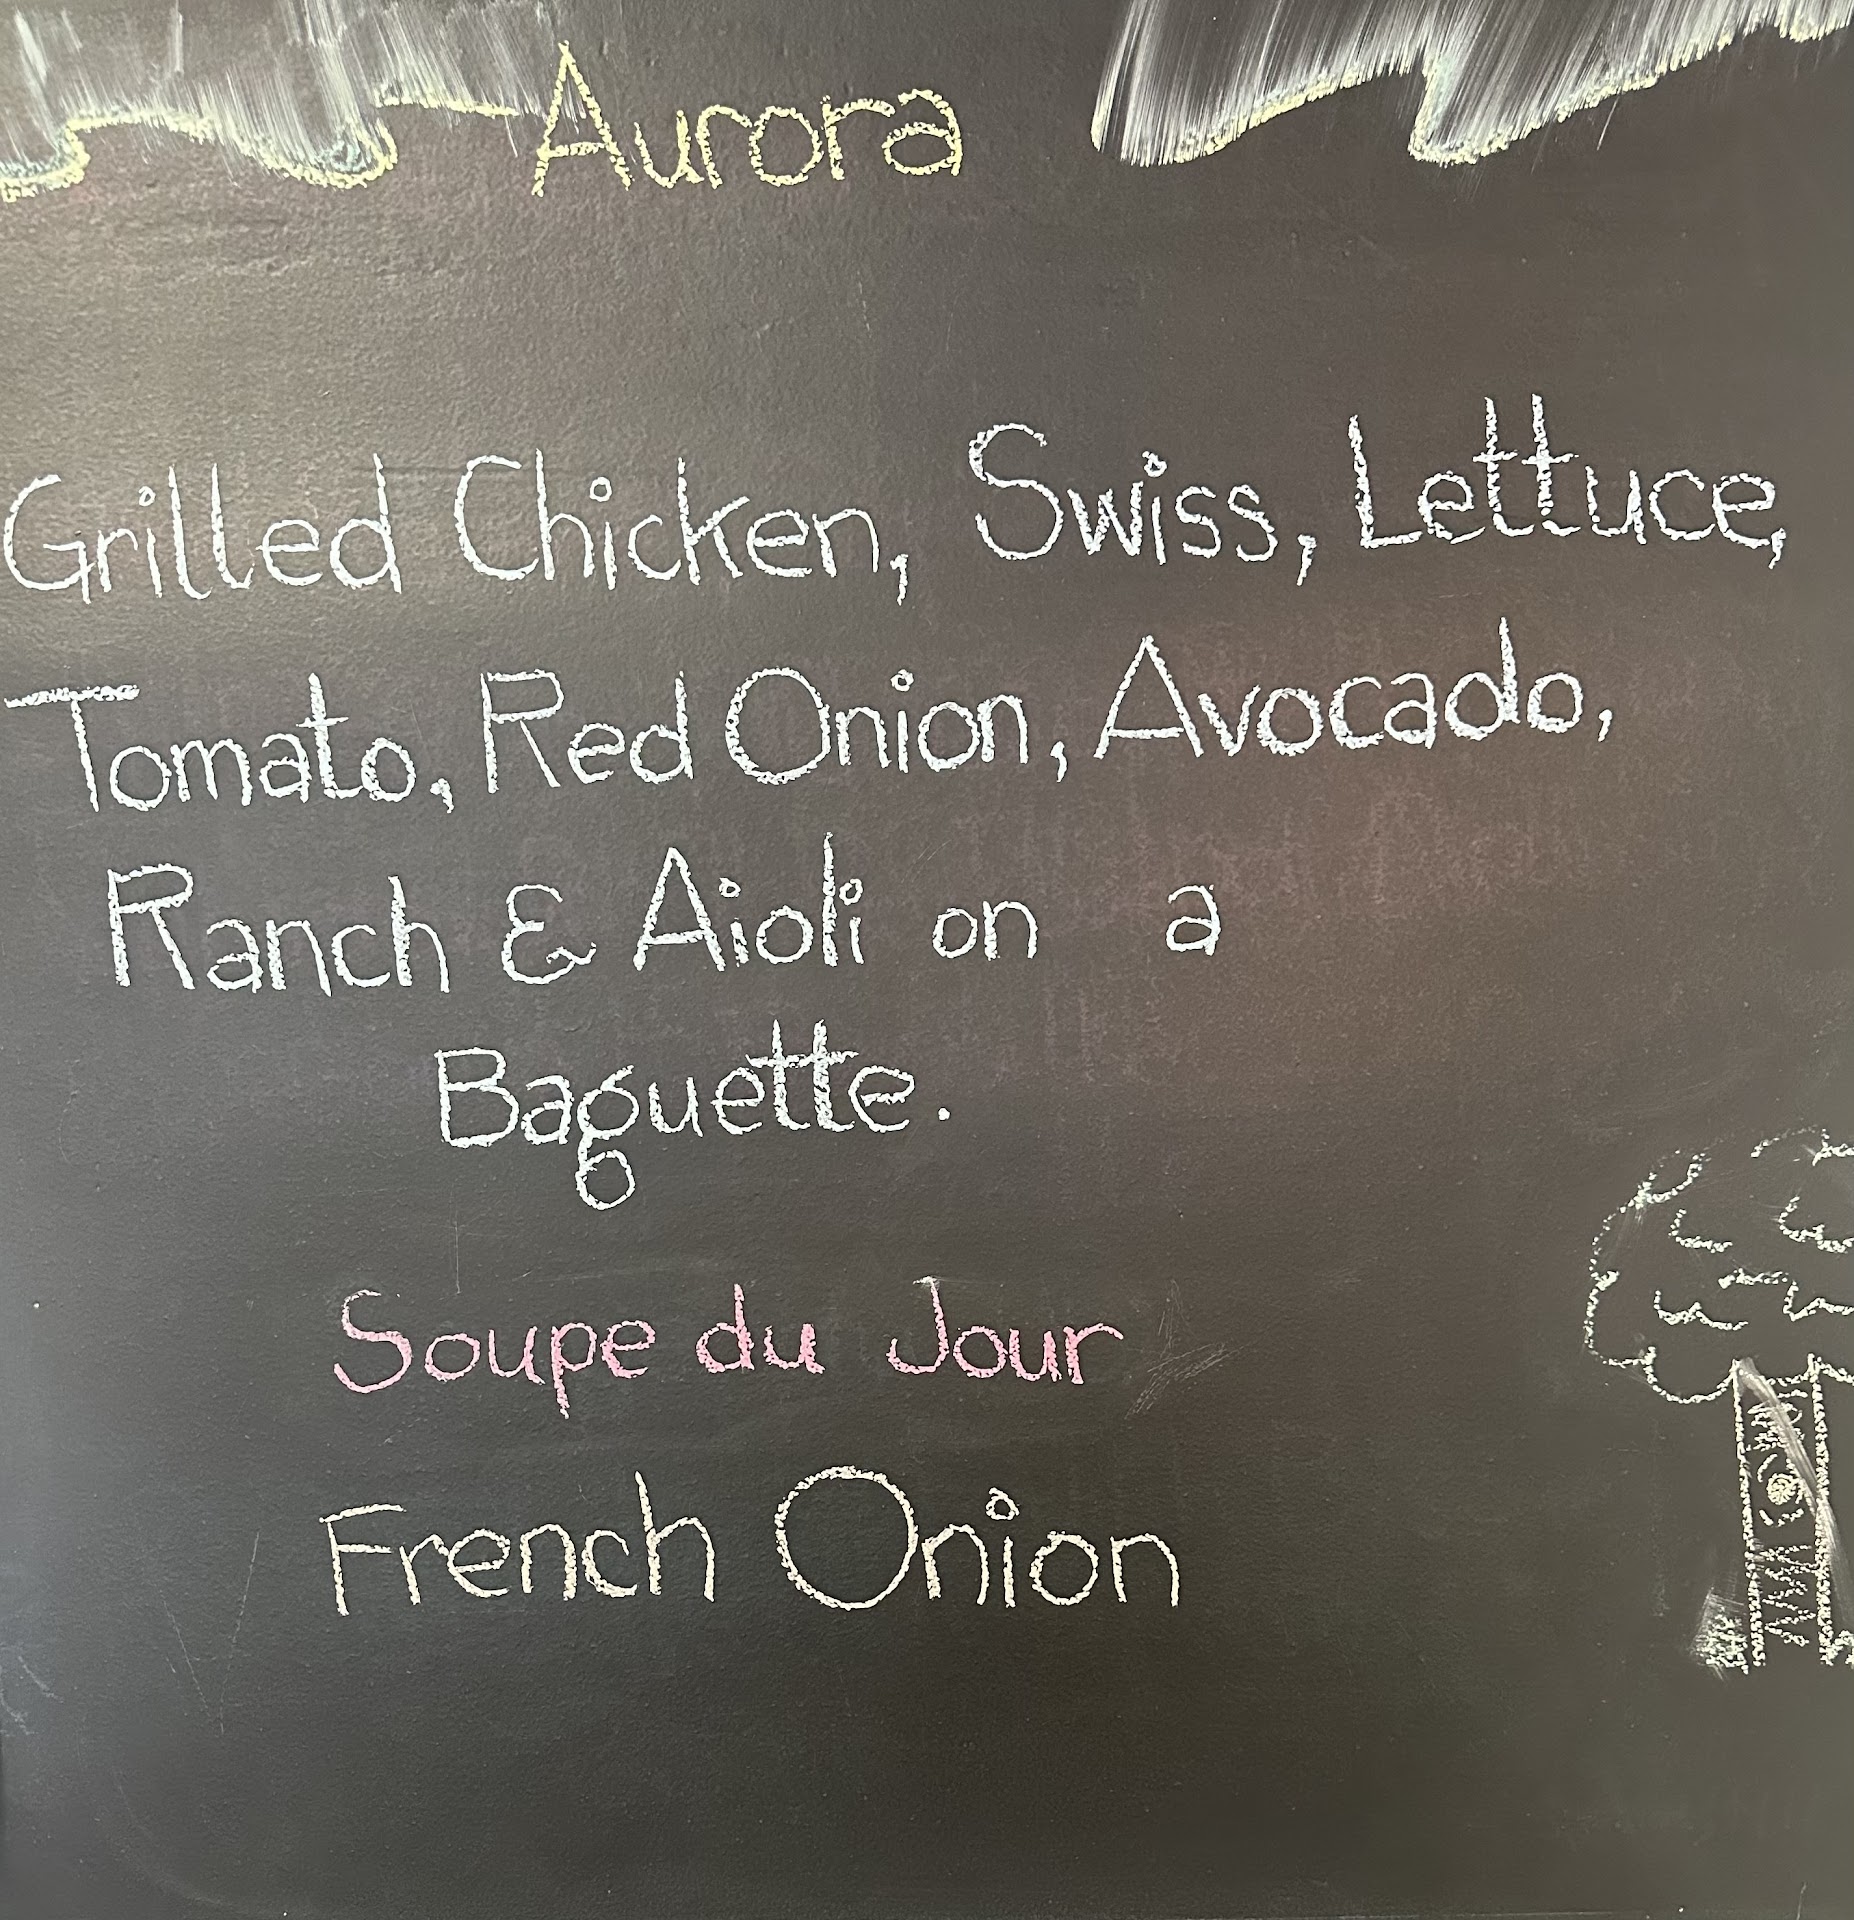 Aurora
Grilled Chicken, Swiss, Lettuce,
Tomato, Red Onion, Avocado,
Ranch & Aioli on a
Baguette.
Soupe du Jour
French Onion